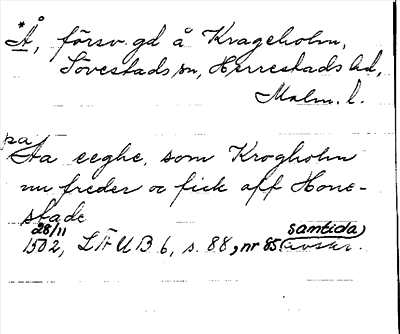 *Å, försv. gd å Krageholm,
Sövestads sn, Herrestads hd,
Malm. l.
pa
Aa eeghe, som Krogholm
nu freder oc fick aff Hone-
stade
28/11 samtida
1502, LÅUB 6, s. 88, nr 85 (avskr.)